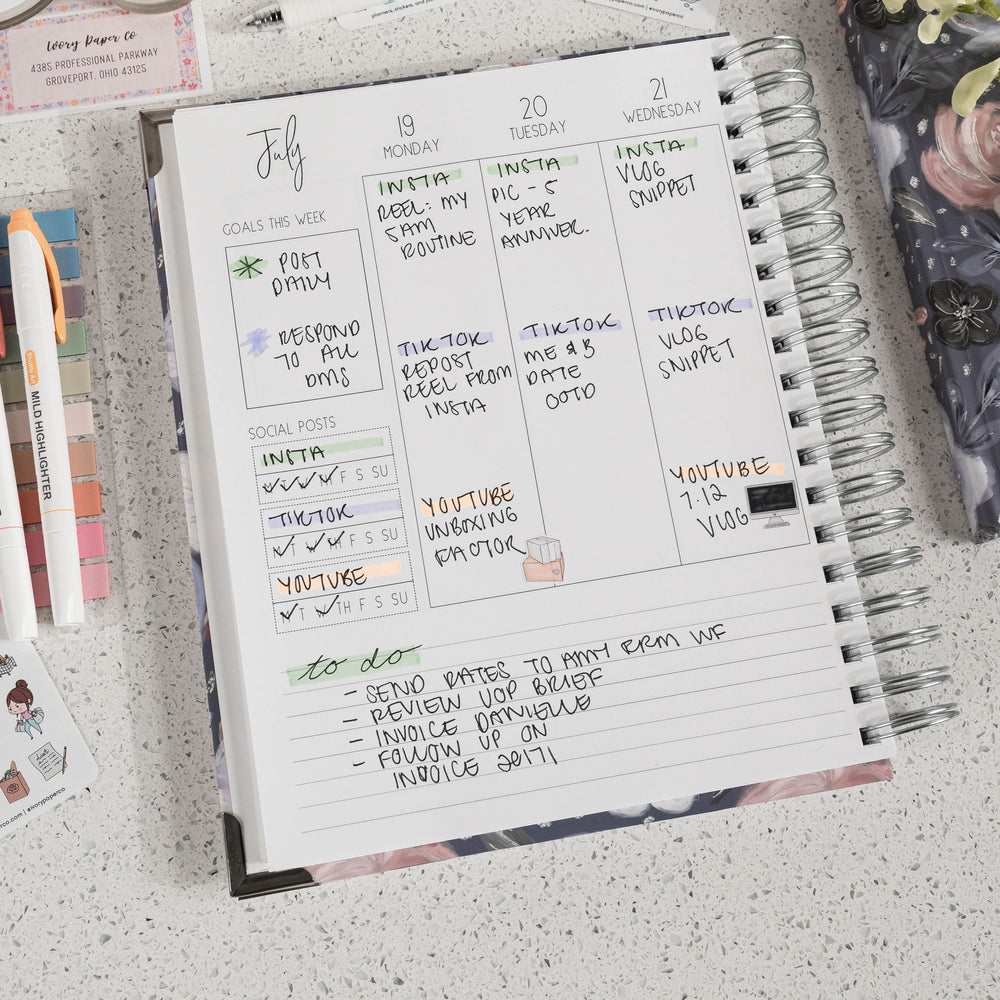 Ivory Paper Co
4385 PROFESSIONAL PARKWAY
GROVEPORT, OHIO 43125
planners, stickers, and
ivorypaperco.com | @ivorypaperco
July
19
MONDAY
20
TUESDAY
21
WEDNESDAY
GOALS THIS WEEK
POST
DAILY
RESPOND
TO ALL
DMS
SOCIAL POSTS
INSTA
M T W TH F S SU
TIKTOK
M T W TH F S SU
YOUTUBE
M T W TH F S SU
INSTA
REEL: MY
5AM
ROUTINE
TIKTOK
REPOST
REEL FROM
INSTA
YOUTUBE
UNBOXING
FACTOR
INSTA
PIC - 5
YEAR
ANNIVER.
TIKTOK
ME & B
DATE
OOTD
INSTA
VLOG
SNIPPET
TIKTOK
VLOG
SNIPPET
YOUTUBE
7.12
VLOG
to do
- SEND RATES TO AMY FRM WF
- REVIEW UOP BRIEF
- INVOICE DANIELLE
- FOLLOW UP ON
INVOICE 22171
Studio Art
MILD HIGHLIGHTER
co.com | @ivorypaperco